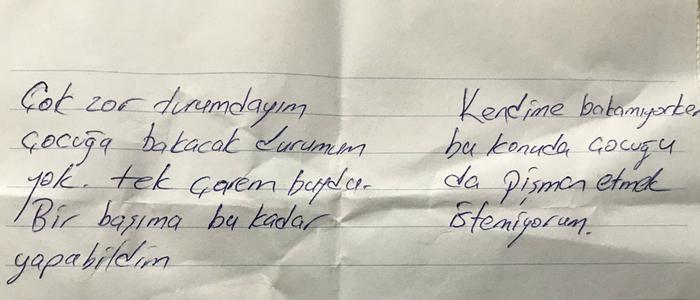 Çok zor durumdayım
çocuğa bakacak durumum
yok. tek çarem buydu.
Bir başıma bu kadar
yapabildim
Kendime bakamıyorken
bu konuda çocuğu
da pişman etmek
istemiyorum.